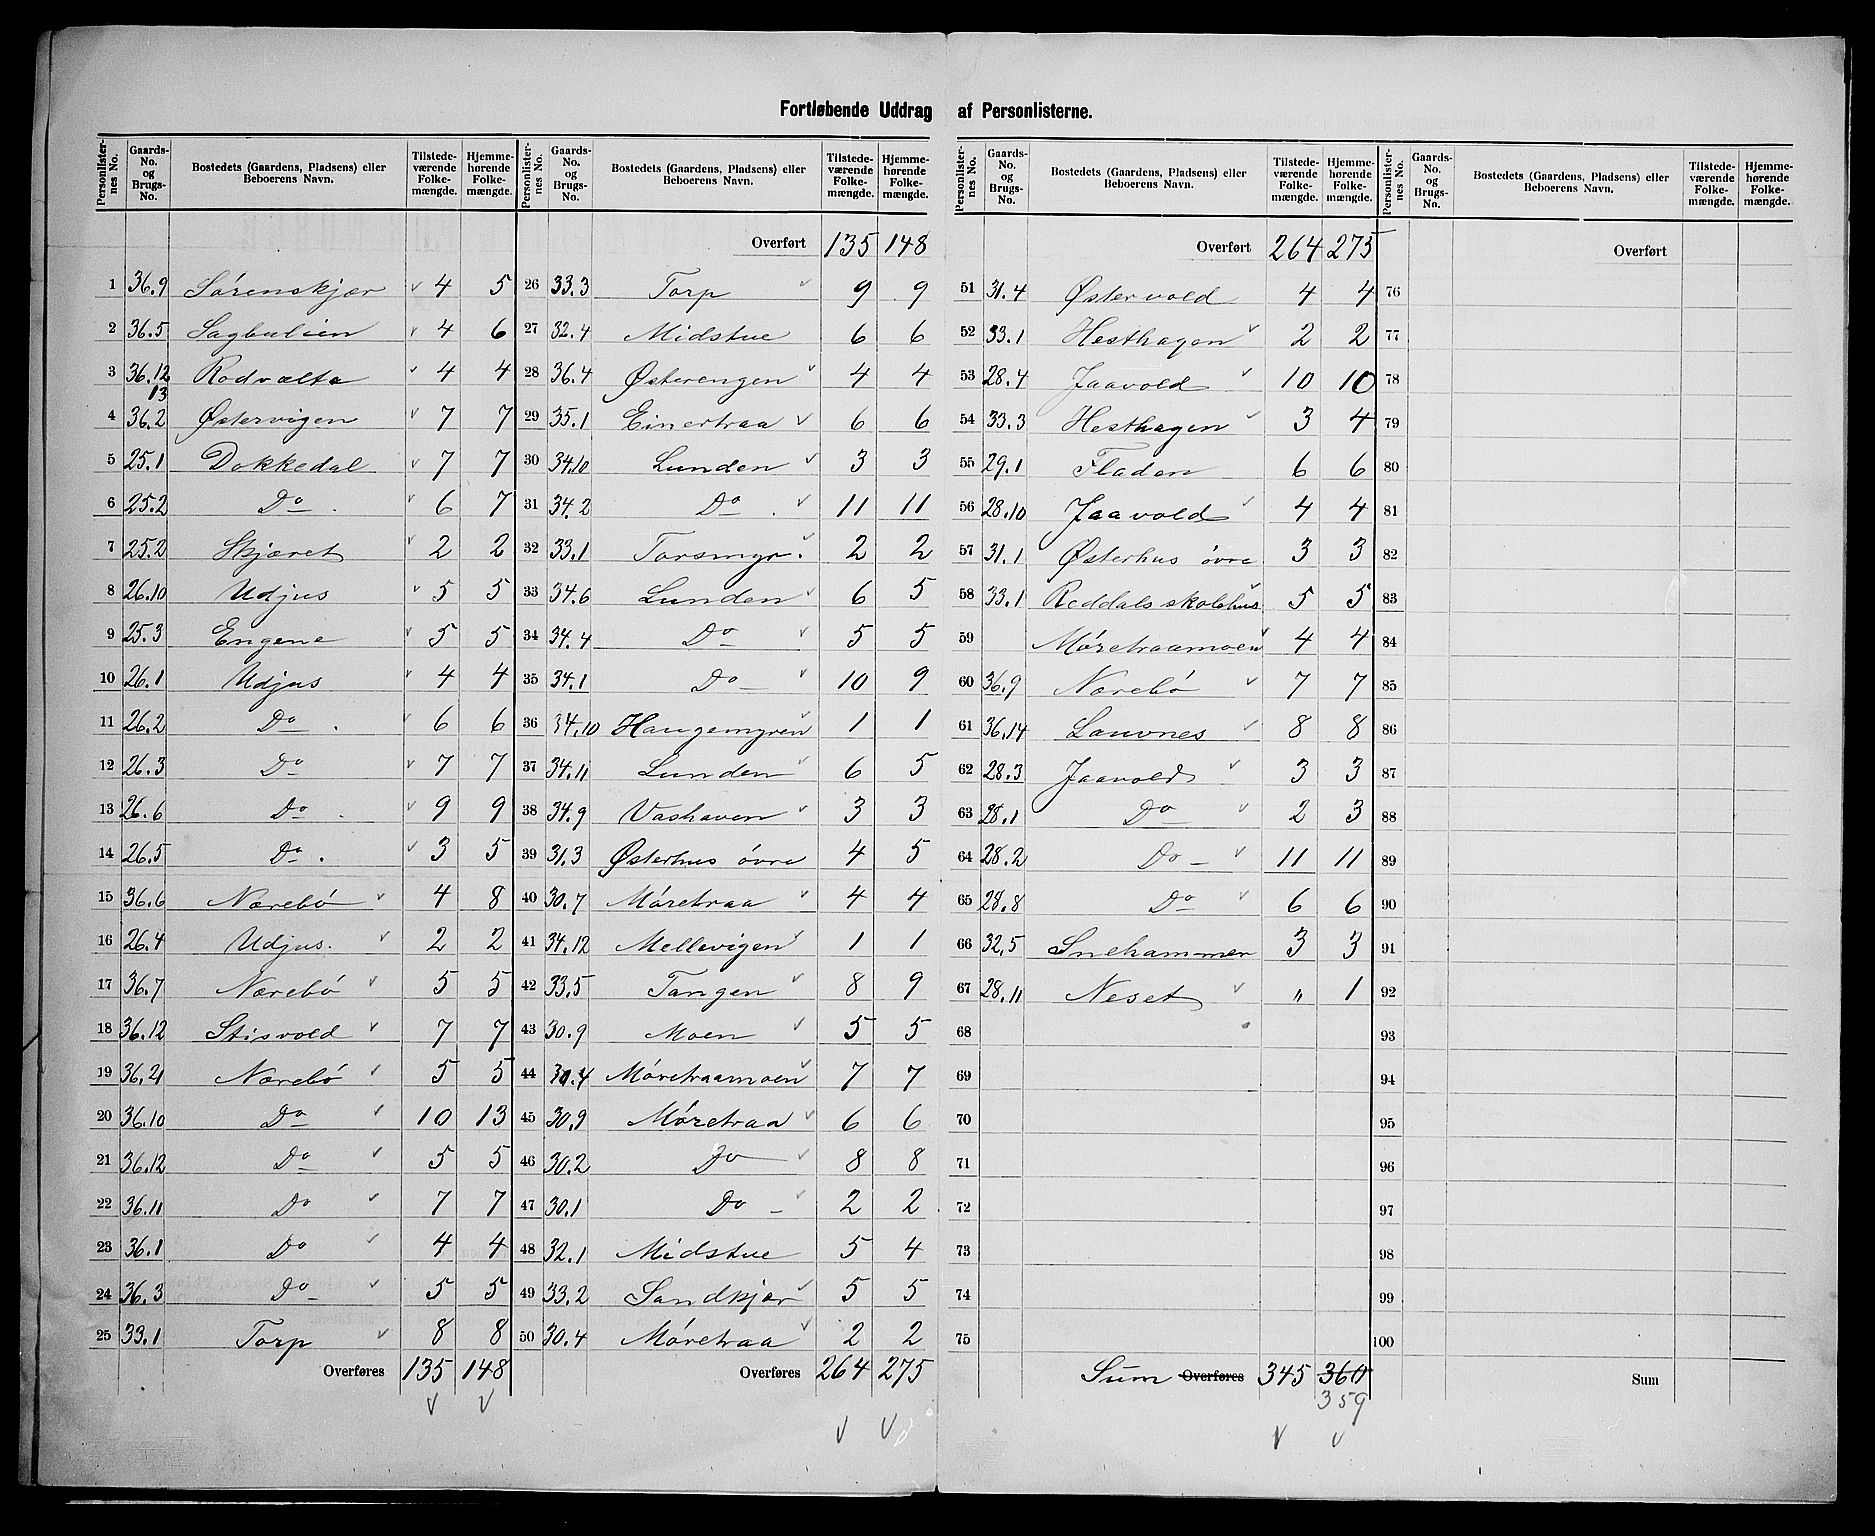 Fortløbende Uddrag af Personlisterne.
Personlister-nes No. | Gaards-No. og Brugs-No. | Bostedets (Gaardens, Pladsens) eller Beboerens Navn. | Tilstede-værende Folke-mængde. | Hjemme-hørende Folke-mængde.
1 36.9 Sørenskjær 4 5
2 36.5 Sagbulien 4 6
3 36.12 13 Rodvælta 4 4
4 36.2 Østervigen 7 7
5 25.1 Dokkedal 7 7
6 25.2 Do 6 7
7 25.2 Skjæret 2 2
8 26.10 Udjus 5 5
9 25.3 Engene 5 5
10 26.1 Udjus 4 4
11 26.2 Do 6 6
12 26.3 Do 7 7
13 26.6 Do 9 9
14 26.5 Do 3 5
15 36.6 Nærebö 4 8
16 26.4 Udjus. 2 2
17 36.7 Nærebö 5 5
18 36.12 Stisvold 7 7
19 36.21 Nærebö 5 5
20 36.10 Do 10 13
21 36.12 Do 5 5
22 36.11 Do 7 7
23 36.1 Do 4 4
24 36.3 Do 5 5
25 33.1 Torp 8 8
Overføres 135 148
Personlister-nes No. | Gaards-No. og Brugs-No. | Bostedets (Gaardens, Pladsens) eller Beboerens Navn. | Tilstede-værende Folke-mængde. | Hjemme-hørende Folke-mængde.
Overført 135 148
26 33.3 Torp 9 9
27 32.4 Midstue 6 6
28 36.4 Østerengen 4 4
29 35.1 Einertraa 6 6
30 34.10 Lunden 3 3
31 34.2 Do 11 11
32 33.1 Torsmyr. 2 2
33 34.6 Lunden 6 5
34 34.4 Do 5 5
35 34.1 Do 10 9
36 34.10 Haugemyren 1 1
37 34.11 Lunden 6 5
38 34.9 Vashaven 3 3
39 31.3 Østerhus övre 4 5
40 30.7 Møretraa 4 4
41 34.12 Mellevigen 1 1
42 33.5 Tangen 8 9
43 30.9 Moen 5 5
44 30.4 Møretraamoen 7 7
45 30.9 Møretraa 6 6
46 30.2 Do 8 8
47 30.1 Do 2 2
48 32.1 Midstue 5 4
49 33.2 Sandkjær 5 5
50 30.4 Møretraa 2 2
Overføres 264 275
Personlister-nes No. | Gaards-No. og Brugs-No. | Bostedets (Gaardens, Pladsens) eller Beboerens Navn. | Tilstede-værende Folke-mængde. | Hjemme-hørende Folke-mængde.
Overført 264 275
51 31.4 Østervold 4 4
52 33.1 Hesthagen 2 2
53 28.4 Jaavold 10 10
54 33.3 Hesthagen 3 4
55 29.1 Fladen 6 6
56 28.10 Jaavold 4 4
57 31.1 Østerhus övre 3 3
58 33.1 Reddals skolehus 5 5
59 Møretraamoen 4 4
60 36.9 Nærebö 7 7
61 36.14 Lauvnes 8 8
62 28.3 Jaavold 3 3
63 28.1 Do 2 3
64 28.2 Do 11 11
65 28.8 Do 6 6
66 32.5 Snehammer 3 3
67 28.11 Neset " 1
68
69
70
71
72
73
74
75
Sum Overføres 345 360
359
Personlister-nes No. | Gaards-No. og Brugs-No. | Bostedets (Gaardens, Pladsens) eller Beboerens Navn. | Tilstede-værende Folke-mængde. | Hjemme-hørende Folke-mængde.
Overført
76
77
78
79
80
81
82
83
84
85
86
87
88
89
90
91
92
93
94
95
96
97
98
99
100
Sum